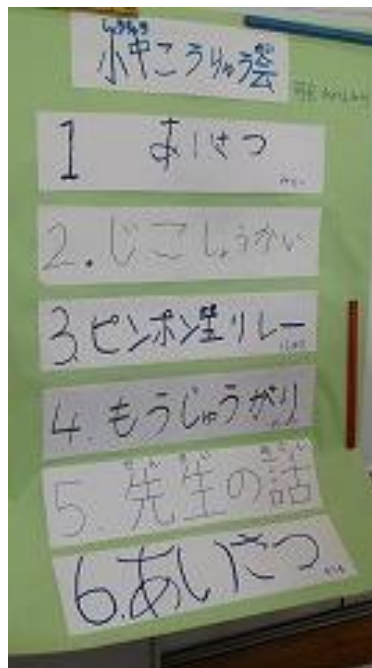 小中こうりゅう会
1 あいさつ
2.じこしょうかい
3.ピンポン玉リレー
4.もうじゅうがり
5.先生の話
6.あいさつ